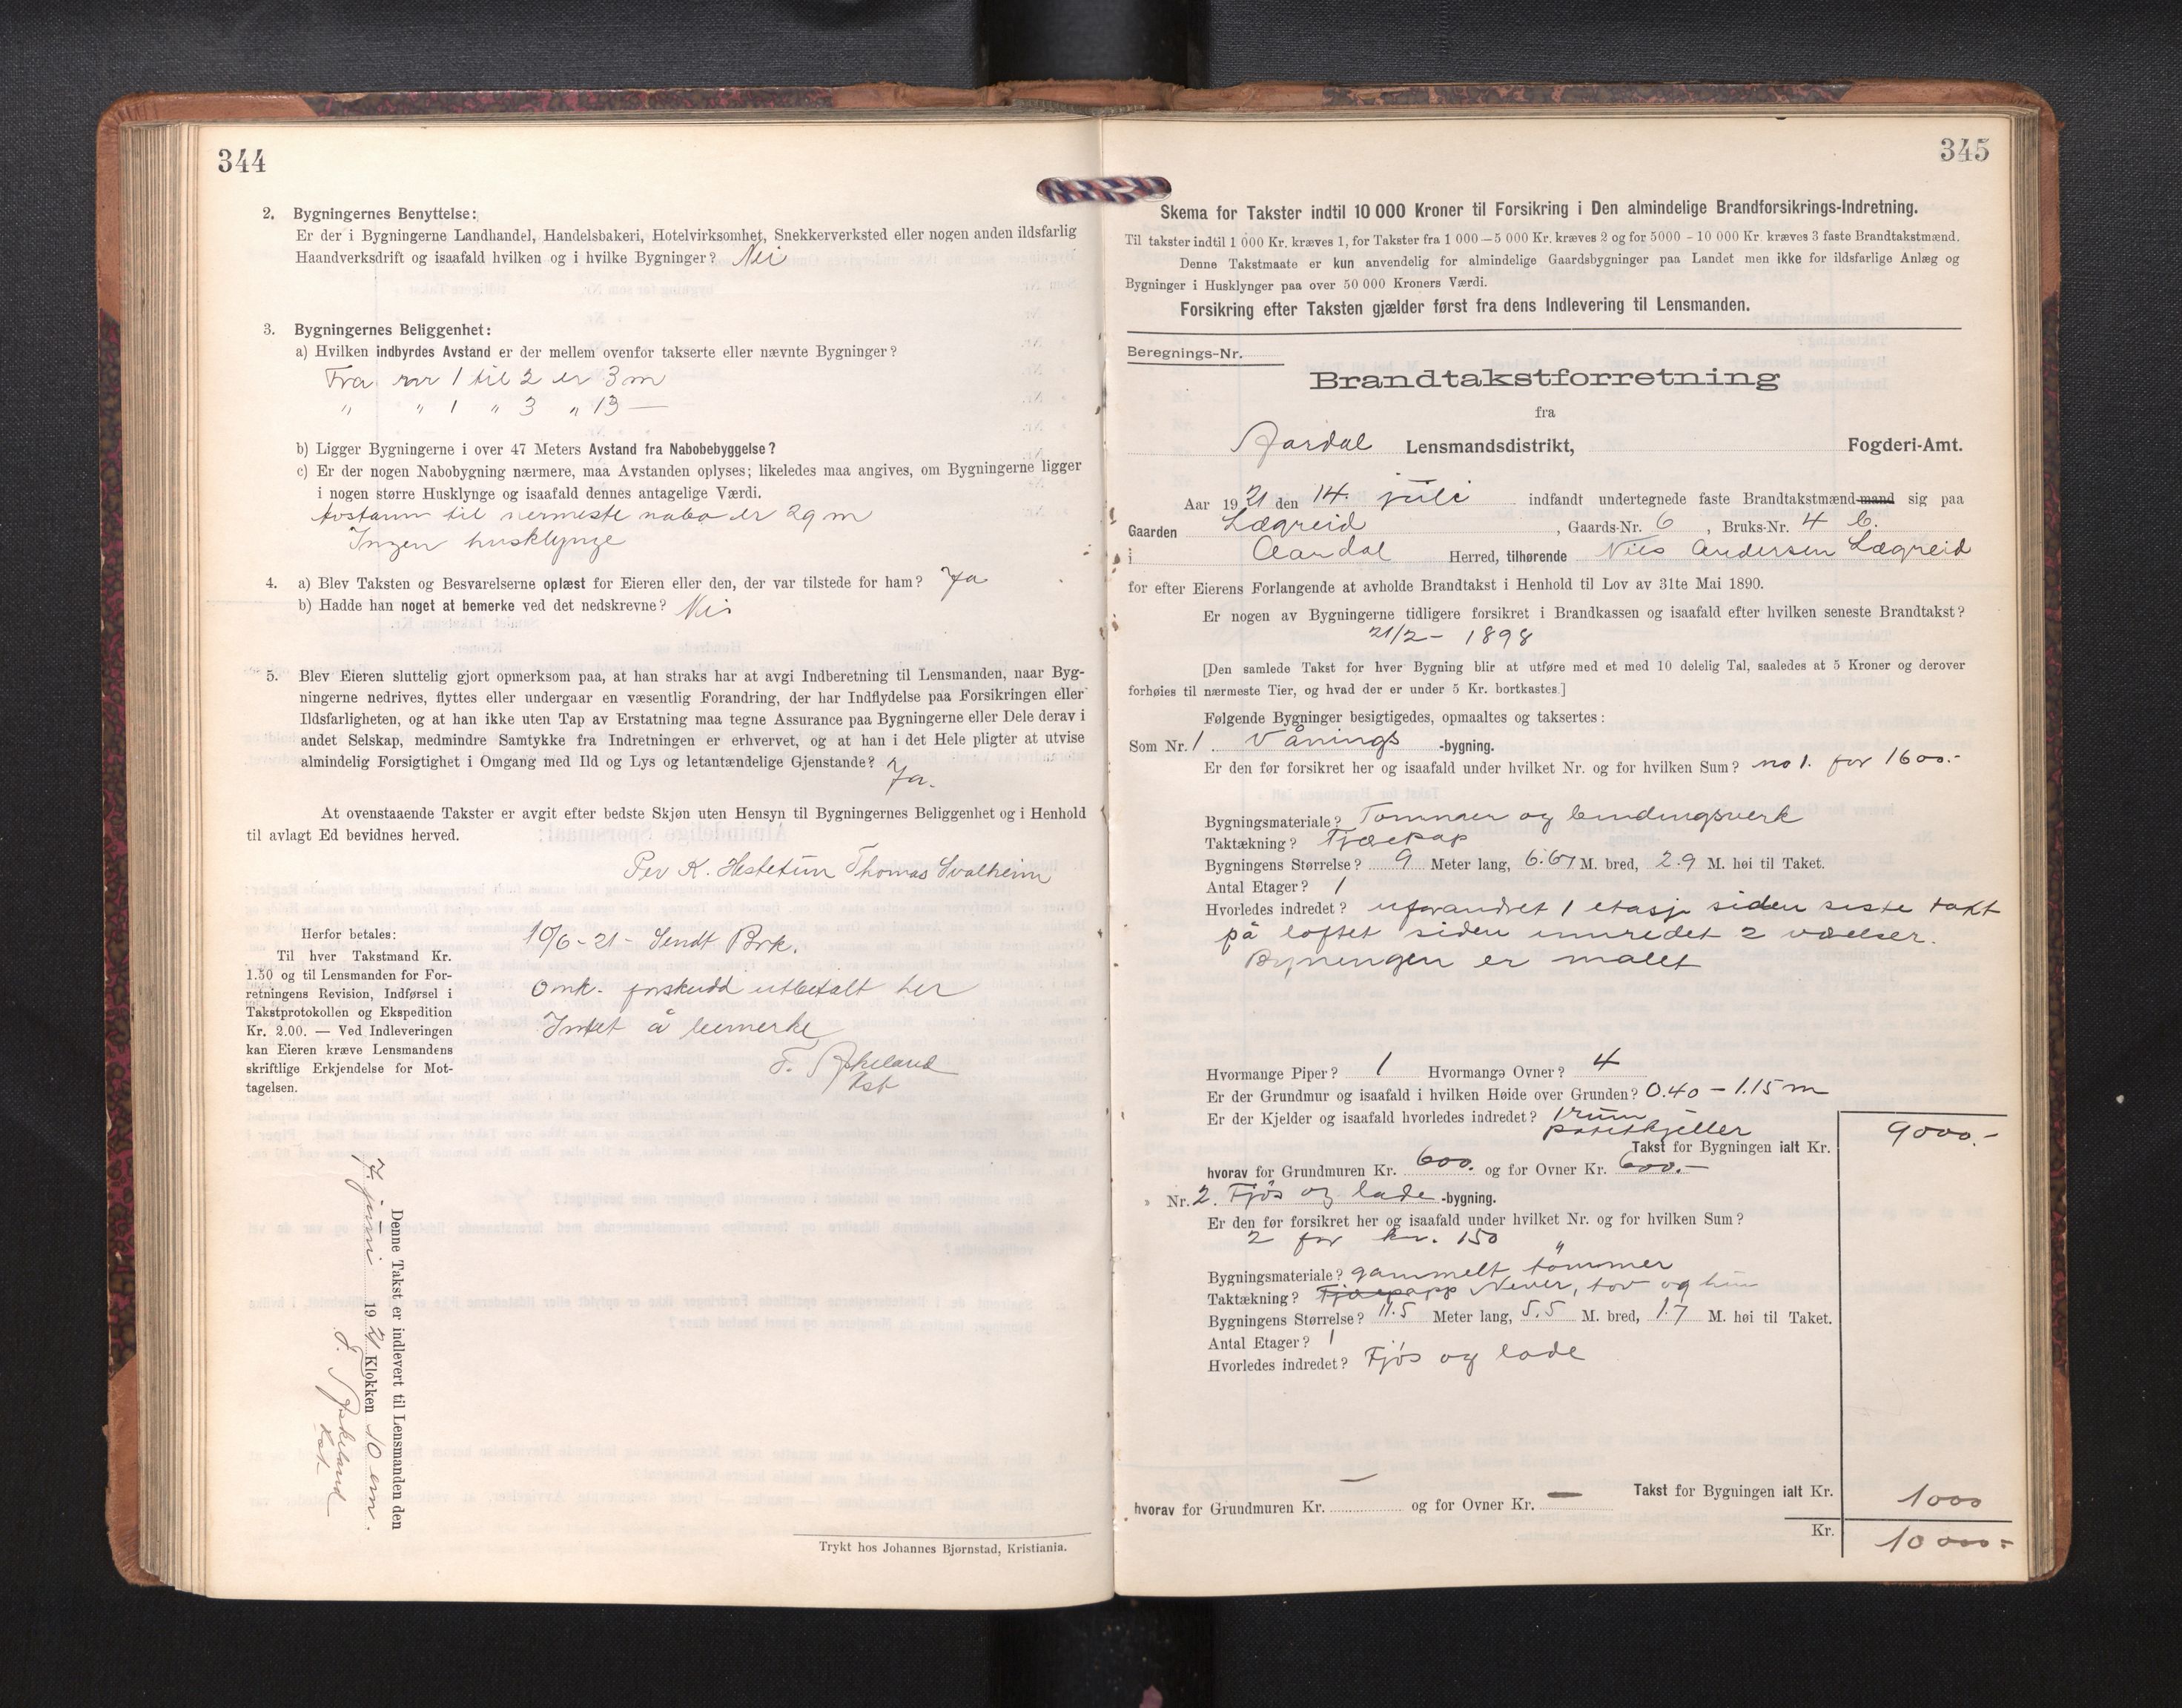 344
2. Bygningernes Benyttelse:
Er der i Bygningerne Landhandel, Handelsbakeri, Hotelvirksomhet, Snekkerverksted eller nogen anden ildsfarlig
Haandverksdrift og isaafald hvilken og i hvilke Bygninger? Nei
3. Bygningernes Beliggenhet:
a) Hvilken indbyrdes Avstand er der mellem ovenfor takserte eller nævnte Bygninger?
Fra nr 1 til 2 er 3 m
" " 1 " 3 " 13 —
b) Ligger Bygningerne i over 47 Meters Avstand fra Nabobebyggelse?
c) Er der nogen Nabobygning nærmere, maa Avstanden oplyses; likeledes maa angives, om Bygningerne ligger
i nogen større Husklynge og isaafald dennes antagelige Værdi.
til nermeste nabo er 29 m
Ingen husklynge
4. a) Blev Taksten og Besvarelserne oplæst for Eieren eller den, der var tilstede for ham? Ja
b) Hadde han noget at bemerke ved det nedskrevne? Nei
5. Blev Eieren sluttelig gjort opmerksom paa, at han straks har at avgi Indberetning til Lensmanden, naar Byg-
ningerne nedrives, flyttes eller undergaar en væsentlig Forandring, der har Indflydelse paa Forsikringen eller
Ildsfarligheten, og at han ikke uten Tap av Erstatning maa tegne Assurance paa Bygningerne eller Dele derav i
andet Selskap, medmindre Samtykke fra Indretningen er erhvervet, og at han i det Hele pligter at utvise
almindelig Forsigtighet i Omgang med Ild og Lys og letantændelige Gjenstande? Ja.
At ovenstaaende Takster er avgit efter bedste Skjøn uten Hensyn til Bygningernes Beliggenhet og i Henhold
til avlagt Ed bevidnes herved.
Per K. Hestetun Thomas Svalheim
Herfor betales:
Til hver Takstmand Kr.
1.50 og til Lensmanden for For-
retningens Revision, Indførsel i
Takstprotokollen og Ekspedition
Kr. 2.00. — Ved Indleveringen
kan Eieren kræve Lensmandens
skriftlige Erkjendelse for Mot-
tagelsen.
10/6-21- Sendt Brk.
Omk. forskudd utbetalt her
Intet å bemerke
F. Askeland
Kst
Denne Takst er indlevert til Lensmanden den
7 juni 1921 Klokken 10 em.
F. Askeland
Kst
Trykt hos Johannes Bjørnstad, Kristiania.
345
Skema for Takster indtil 10 000 Kroner til Forsikring i Den almindelige Brandforsikrings-Indretning.
Til takster indtil 1 000 Kr. kræves 1, for Takster fra 1 000—5 000 Kr. kræves 2 og for 5000 - 10 000 Kr. kræves 3 faste Brandtakstmænd.
Denne Takstmaate er kun anvendelig for almindelige Gaardsbygninger paa Landet men ikke for ildsfarlige Anlæg og
Bygninger i Husklynger paa over 50 000 Kroners Værdi.
Forsikring efter Taksten gjælder først fra dens Indlevering til Lensmanden.
Beregnings-Nr.
Brandtakstforretning
fra
Aardal Lensmandsdistrikt, Fogderi-Amt.
Aar 1921 den 14. juli indfandt undertegnede faste Brandtakstmænd mand sig paa
Gaarden Lægreid, Gaards-Nr. 6, Bruks-Nr. 4 b.
i Aardal Herred, tilhørende Nils Andersen Lægreid
for efter Eierens Forlangende at avholde Brandtakst i Henhold til Lov av 31te Mai 1890.
Er nogen av Bygningerne tidligere forsikret i Brandkassen og isaafald efter hvilken seneste Brandtakst?
21/2 - 1898
[Den samlede Takst for hver Bygning blir at utføre med et med 10 delelig Tal, saaledes at 5 Kroner og derover
forhøies til nærmeste Tier, og hvad der er under 5 Kr. bortkastes.]
Følgende Bygninger besigtigedes, opmaaltes og taksertes:
Som Nr. 1. Vånings -bygning.
Er den før forsikret her og isaafald under hvilket Nr. og for hvilken Sum? no 1. for 1600.-
Bygningsmateriale? Tømmer og bindingsverk
Taktækning? Tjærepap
Bygningens Størrelse? 9 Meter lang, 6.67 M. bred, 2.9 M. høi til Taket.
Antal Etager? 1
Hvorledes indredet? uforandret 1 etasje siden siste takt
på loftet siden innredet 2 værelser.
Bynengen er malet
Hvormange Piper? 1 Hvormange Ovner? 4
Er der Grundmur og isaafald i hvilken Høide over Grunden? 0.40 - 1.15 m
Er der Kjelder og isaafald hvorledes indredet? 1 rum
potetkjeller
Takst for Bygningen ialt Kr. 9000.-
hvorav for Grundmuren Kr. 600. og for Ovner Kr. 600.-
" Nr. 2. Fjös og lade -bygning.
Er den før forsikret her og isaafald under hvilket Nr. og for hvilken Sum?
2 for kr. 150
Bygningsmateriale? gammelt tömmer
Taktækning? Tjærepapp Never, tov og
Bygningens Størrelse? 11.5 Meter lang, 5.5 M. bred, 1.7 M. høi til Taket.
Antal Etager? 1
Hvorledes indredet? Fjós og lade
Takst for Bygningen ialt Kr. 1000
hvorav for Grundmuren Kr. — og for Ovner Kr. —
Kr. 10 000:-